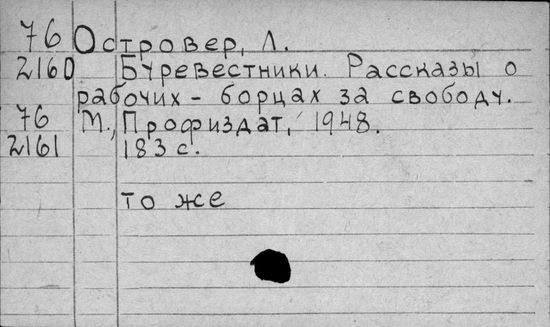 76 Островер, Л.
2160 Буревестники. Рассказы о
рабочих - борцах за свободу.
76 М., Профиздат, 1948.
2161 183 с.
то же